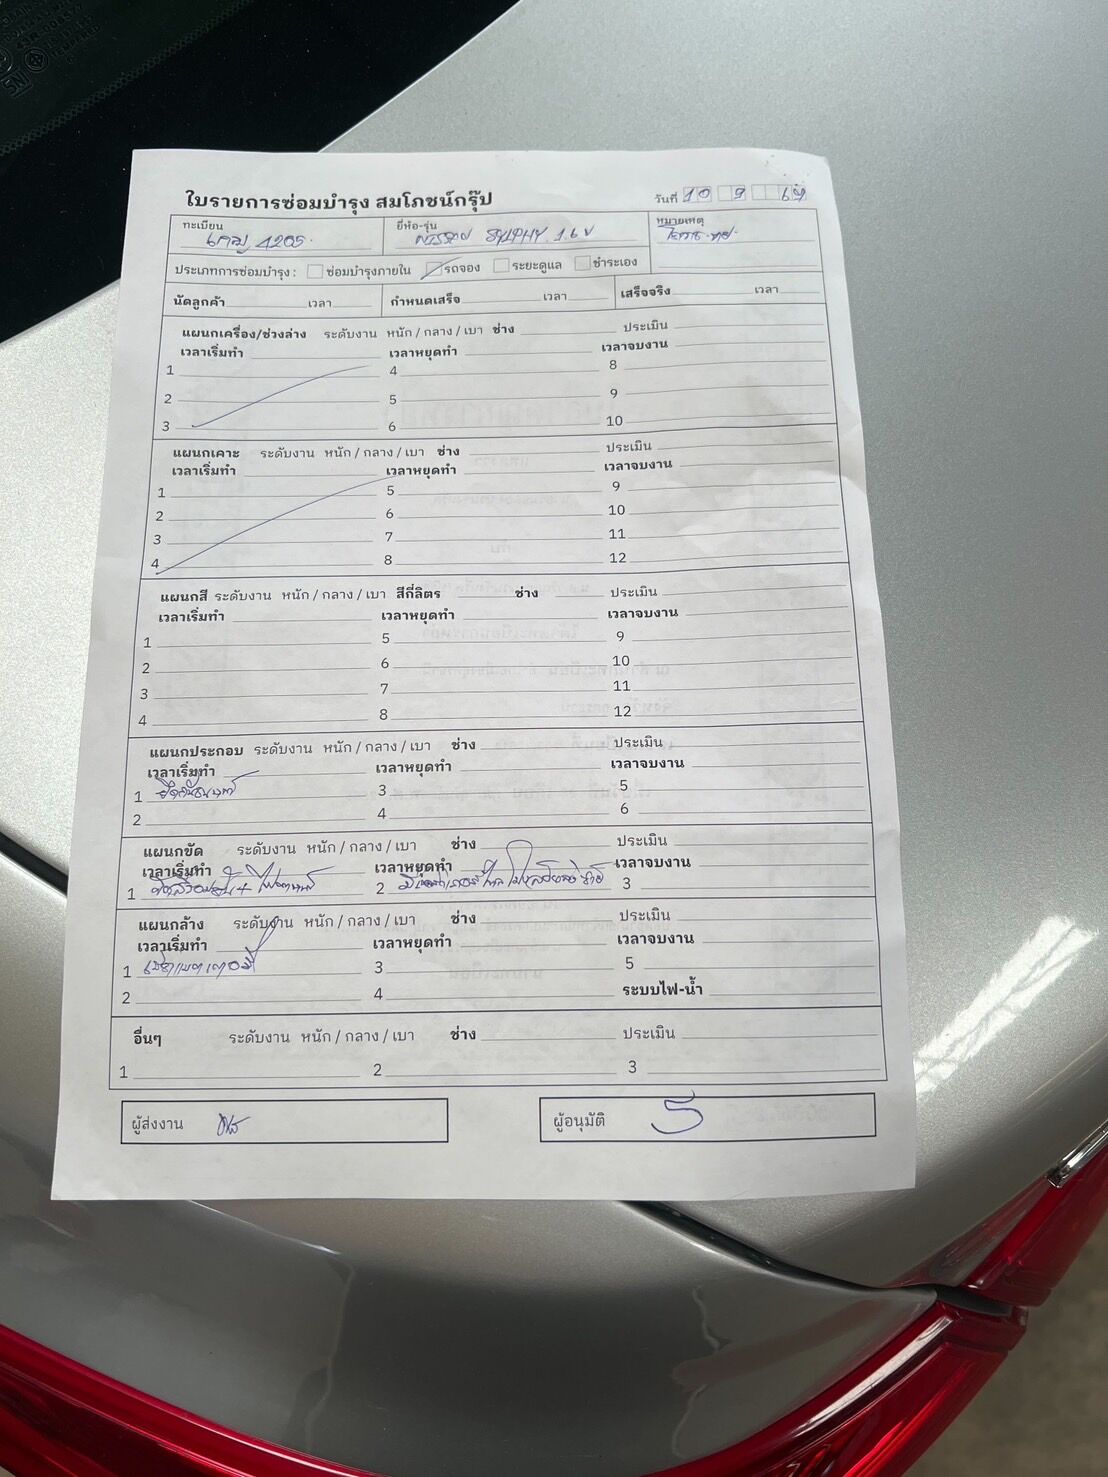 ใบรายการซ่อมบำรุง สมโภชน์กรุ๊ป
วันที่ 10 9 67
ทะเบียน 4205
ยี่ห้อ-รุ่น SYLPHY 1.6 V
หมายเหตุ
ประเภทการซ่อมบำรุง : ซ่อมบำรุงภายใน รถจอง ระยะดูแล ชำระเอง
นัดลูกค้า เวลา กำหนดเสร็จ เวลา เสร็จจริง เวลา
แผนกเครื่อง/ช่วงล่าง ระดับงาน หนัก / กลาง / เบา ช่าง ประเมิน
เวลาเริ่มทำ เวลาหยุดทำ เวลาจบงาน
1 4 8
2 5 9
3 6 10
แผนกเคาะ ระดับงาน หนัก / กลาง / เบา ช่าง ประเมิน
เวลาเริ่มทำ เวลาหยุดทำ เวลาจบงาน
1 5 9
2 6 10
3 7 11
4 8 12
แผนกสี ระดับงาน หนัก / กลาง / เบา สีกี่ลิตร ช่าง ประเมิน
เวลาเริ่มทำ เวลาหยุดทำ เวลาจบงาน
1 5 9
2 6 10
3 7 11
4 8 12
แผนกประกอบ ระดับงาน หนัก / กลาง / เบา ช่าง ประเมิน
เวลาเริ่มทำ เวลาหยุดทำ เวลาจบงาน
1 3 5
2 4 6
แผนกขัด ระดับงาน หนัก / กลาง / เบา ช่าง ประเมิน
เวลาเริ่มทำ เวลาหยุดทำ เวลาจบงาน
1 2 3
แผนกล้าง ระดับงาน หนัก / กลาง / เบา ช่าง ประเมิน
เวลาเริ่มทำ เวลาหยุดทำ เวลาจบงาน
1 3 5
2 4 ระบบไฟ-น้ำ
อื่นๆ ระดับงาน หนัก / กลาง / เบา ช่าง ประเมิน
1 2 3
ผู้ส่งงาน
ผู้อนุมัติ